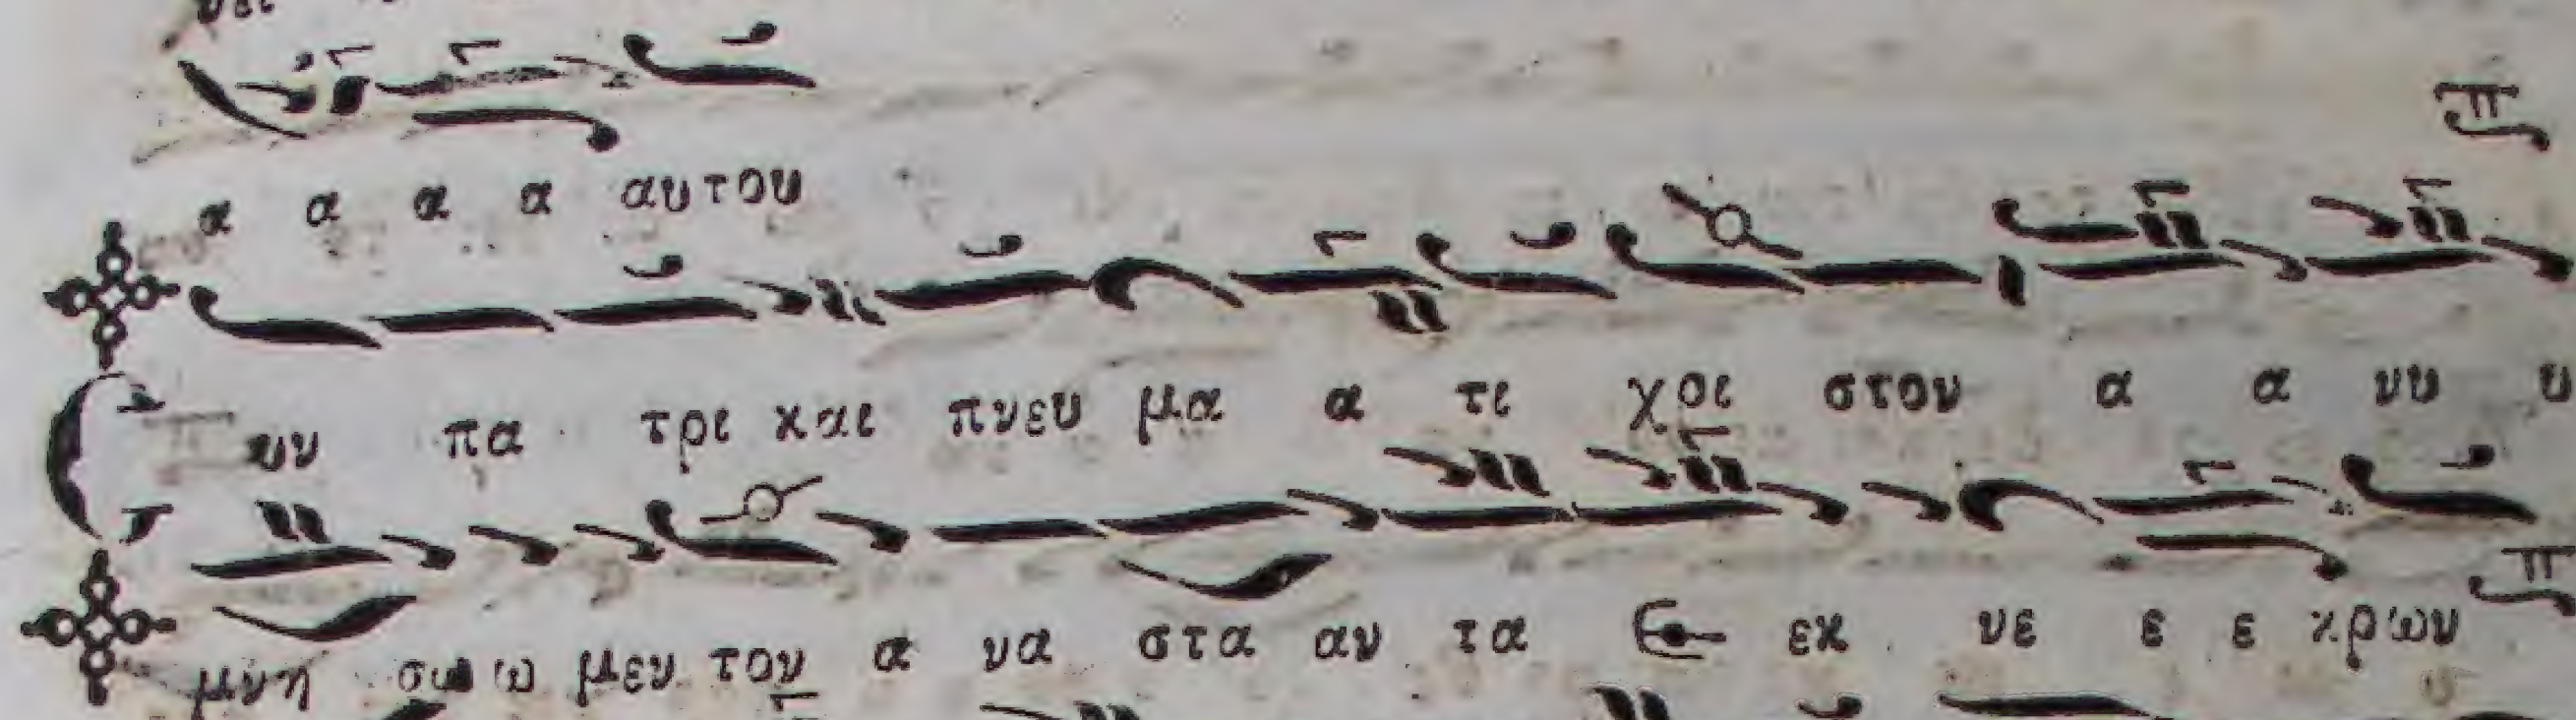 α α α α αυτου
υν πα τρι και πνευ μα α τι χρι στον α α νυ υ
μνη σω ω μεν τον α να στα αν τα εκ νε ε ε κρων